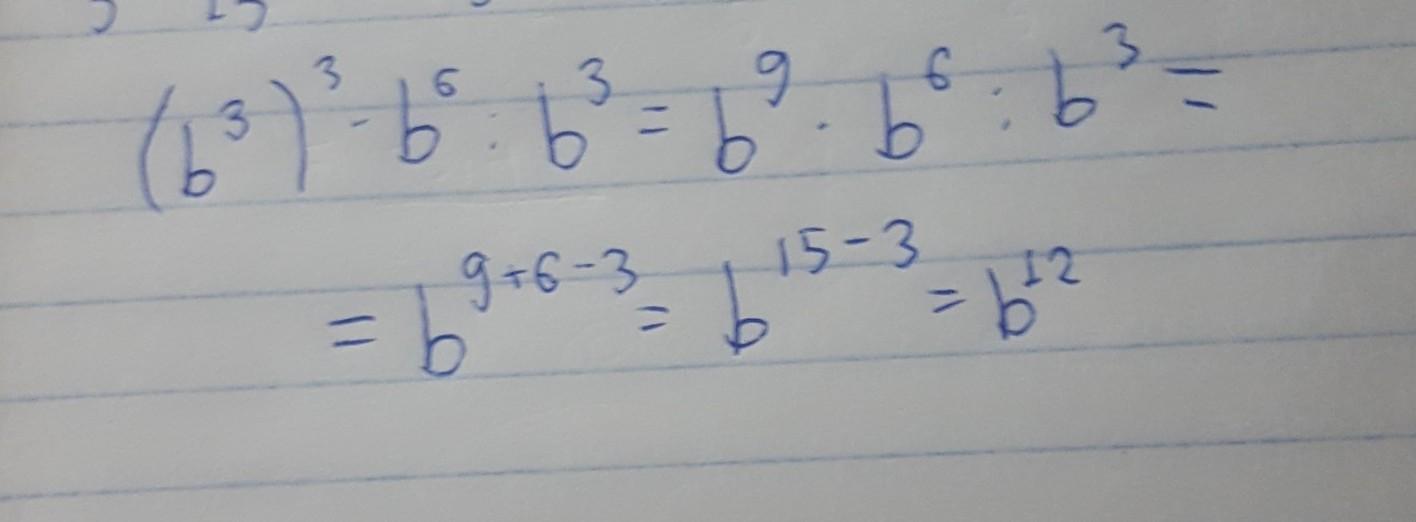 (b³)³ · b⁶ : b³ = b⁹ · b⁶ : b³ =
= b⁹⁺⁶⁻³ = b¹⁵⁻³ = b¹²